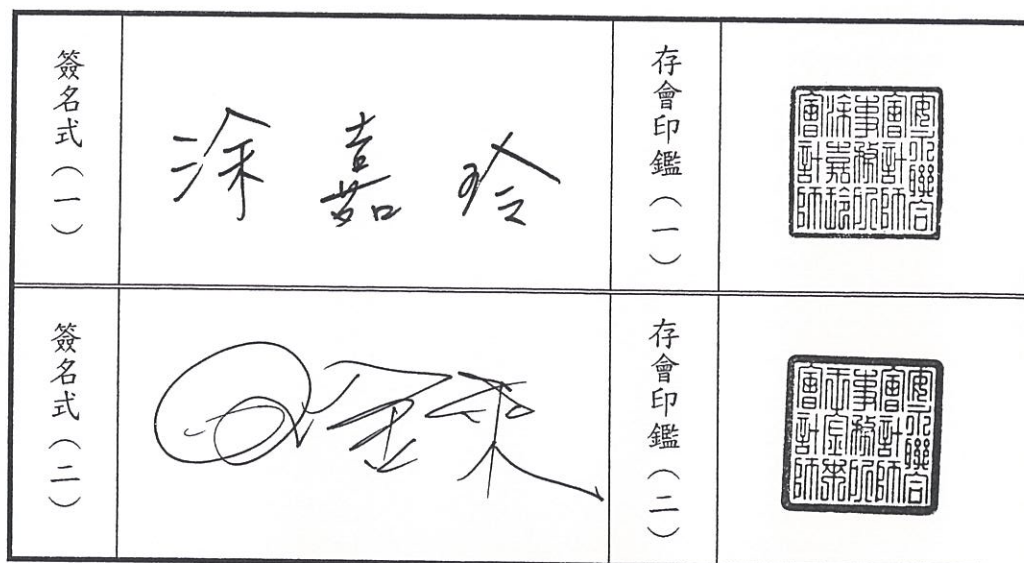 簽名式（一）
涂嘉玲
存會印鑑（一）
安永聯合
會計師
事務所
涂嘉玲
會計師
簽名式（二）
存會印鑑（二）
安永聯合
會計師
事務所
王金來
會計師